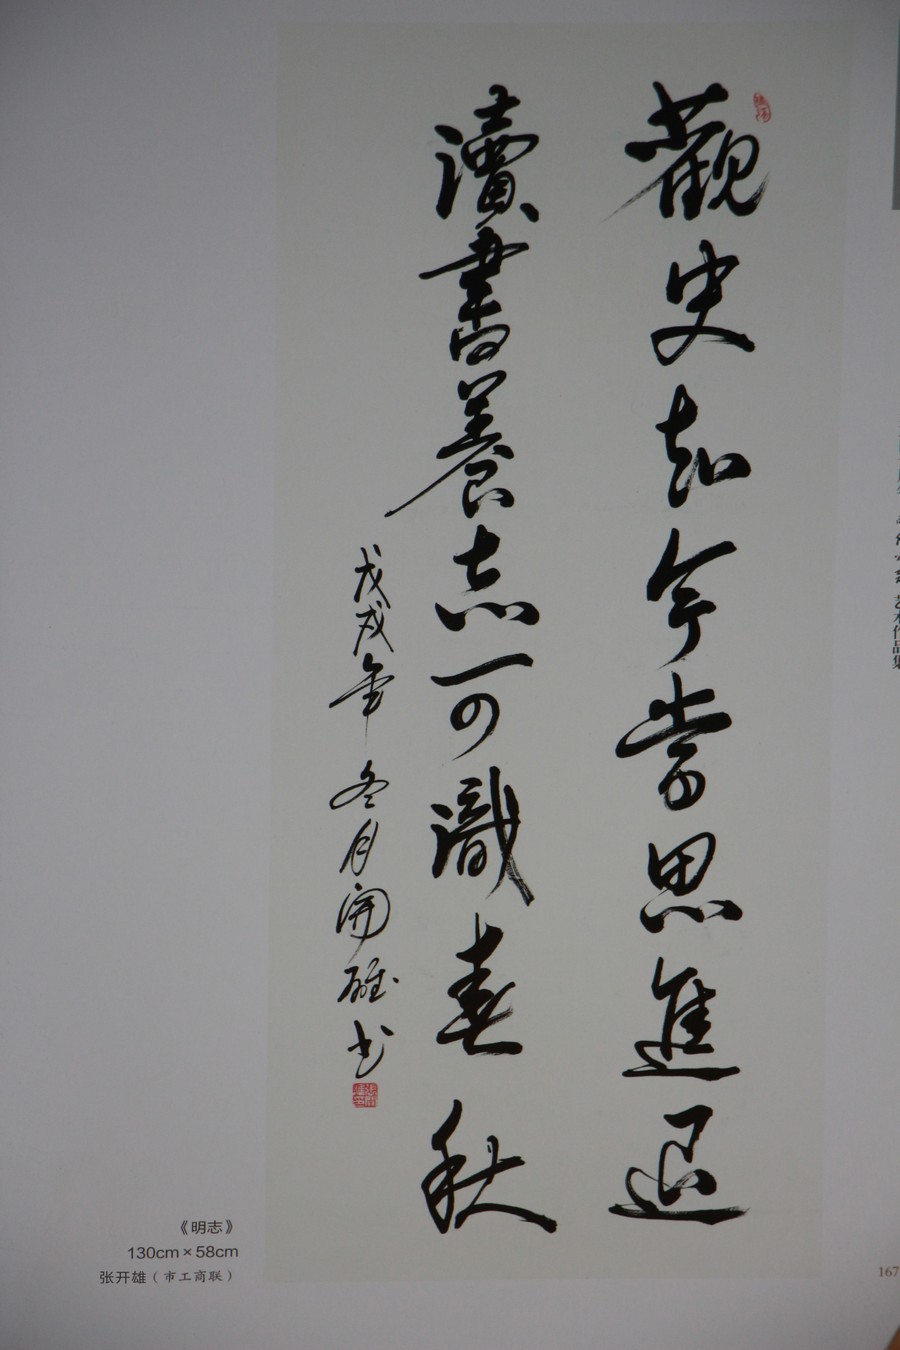 觀史知今當思進退
讀書養志可識春秋
戊戌年冬月開雄书
《明志》
130cm×58cm
张开雄（市工商联）
艺术作品集
167